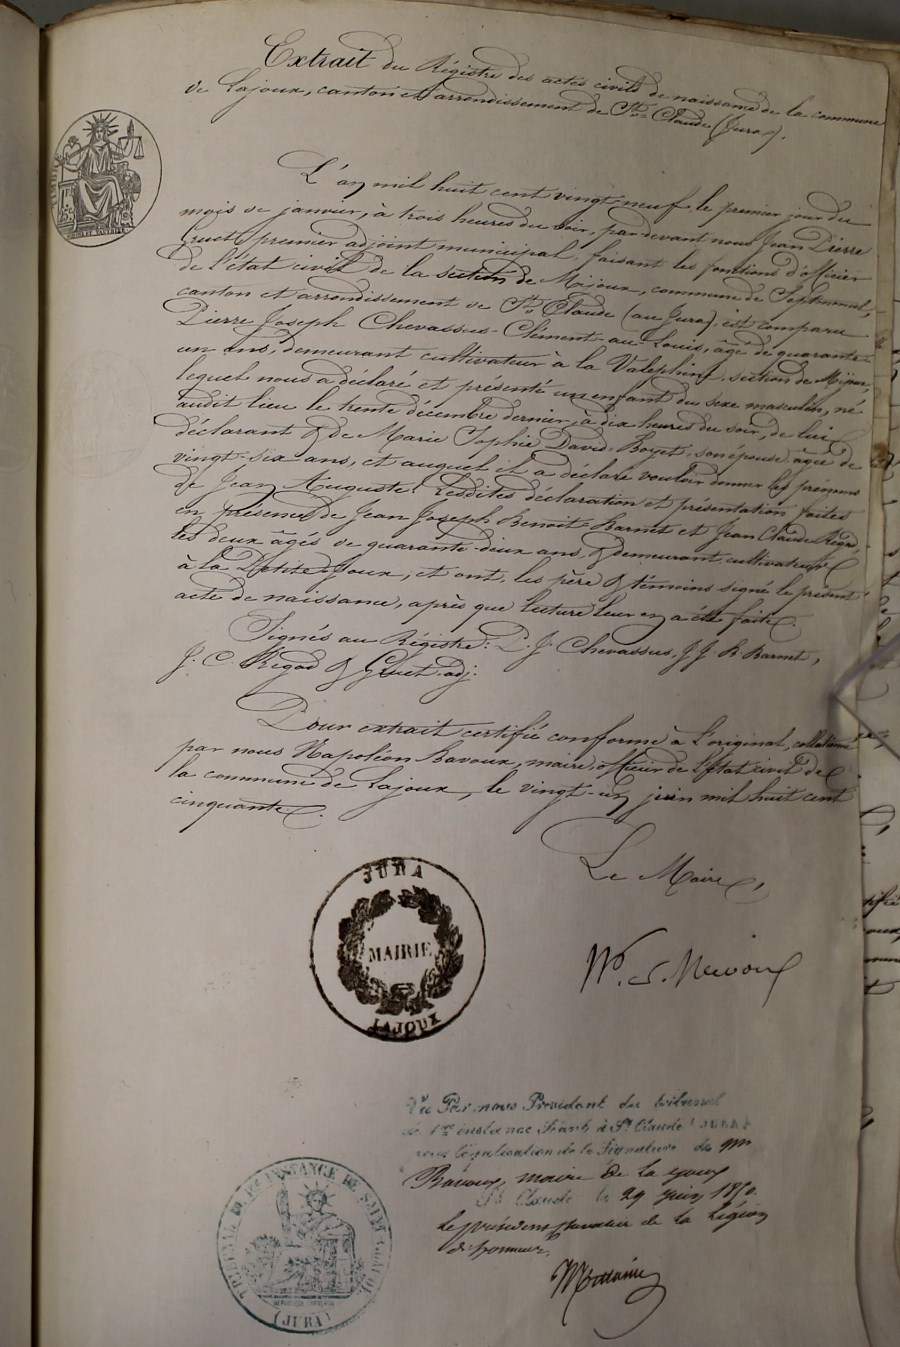 Extrait du Régistre des actes civils de naissance de la commune
de Lajoux, canton et arrondissement de St. Claude (Jura).
L'an mil huit cent vingt neuf le premier jour du
mois de janvier, à trois heures du soir, par devant nous Jean Pierre
Gruet, premier adjoint municipal, faisant les fonctions d'officier
de l'état civil de la section de Mijoux, commune de Septmoncel,
canton et arrondissement de St. Claude (au Jura) est comparu
Pierre Joseph Chevassus-Clément au Louis, âgé de quarante
un ans, demeurant cultivateur à la Valephin, section de Mijoux,
lequel nous a déclaré et présenté un enfant du sexe masculin, né
audit lieu le trente décembre dernier à dix heures du soir, de lui
déclarant & de Marie Sophie David-Boyet, son épouse âgée de
vingt-six ans, et auquel il a déclaré vouloir donner les prénoms
de Jean Auguste. Lesdites déclaration et présentation faites
en présence de Jean Joseph Benoit-Barnet et Jean Claude Régad,
les deux âgés de quarante-deux ans & demeurant cultivateurs
à la Petite-Joux, et ont, les père & témoins signé le présent
acte de naissance, après que lecture leur en a été faite.
Signés au Régistre: P. J. Chevassus, J J B Barnet,
J. C. Régad & Gruet adj.
Pour extrait certifié conforme à l'original, collationné
par nous Napoléon Bavoux, maire officier de l'état civil de
la commune de Lajoux, le vingt-un juin mil huit cent
cinquante.
Le Maire,
JURA
MAIRIE
LAJOUX
Vu Par nous Président du tribunal
de 1re instance séant à St Claude (JURA)
pour légalisation de la Signature de Mr
Bavoux, maire de la joux
St Claude le 29 juin 1850.
Le président chevalier de la Légion
d'honneur,
TRIBUNAL DE 1re INSTANCE DE SAINT CLAUDE
(JURA)